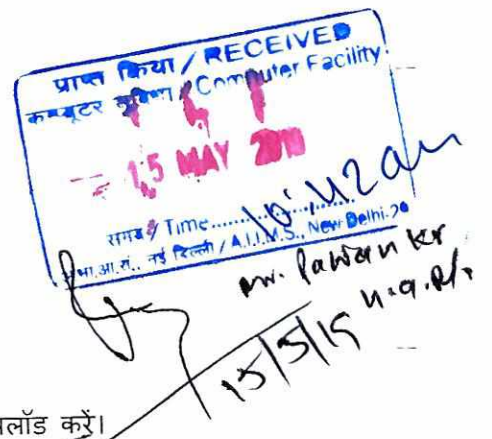 प्राप्त किया / RECEIVED
कम्प्यूटर सुविधा / Computer Facility
15 MAY
समय / Time.......... 10:42 am
भा.आ.सं., नई दिल्ली / A.I.I.M.S., New Delhi-29
Mr. Pawan Kr
15/5/19 n.a.pl.
लॉड करें।